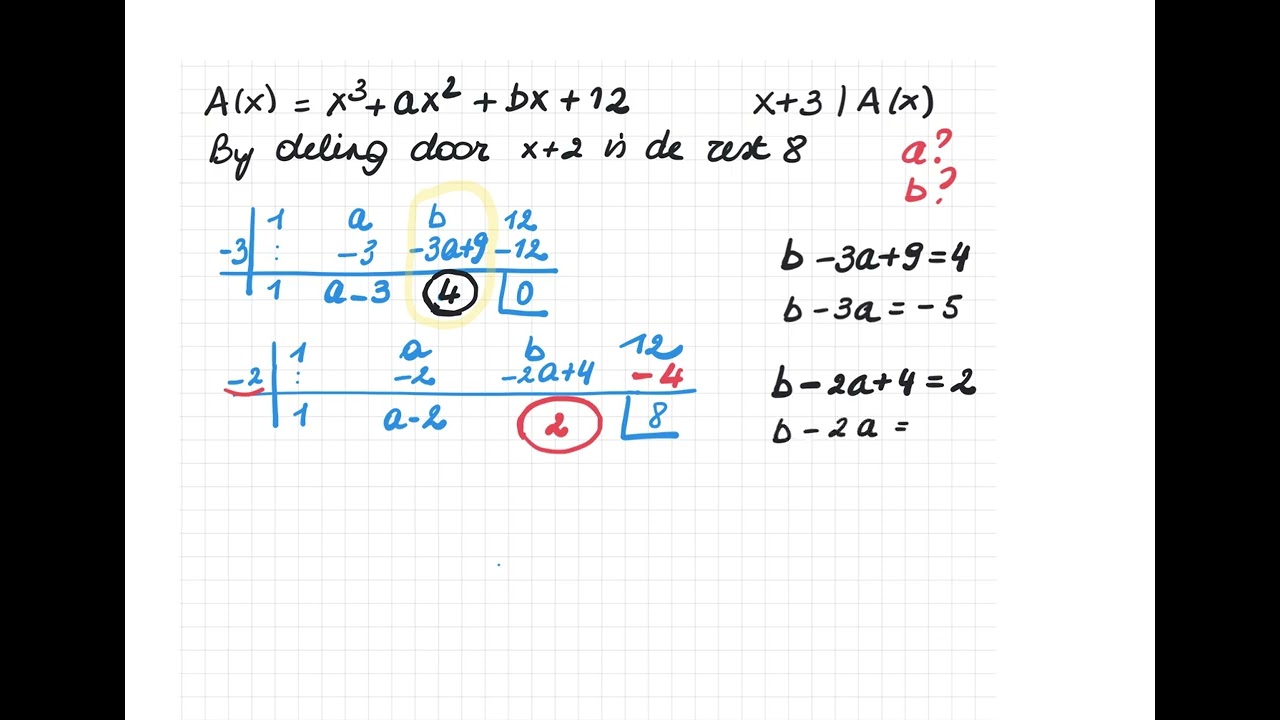 A(x) = x³ + ax² + bx + 12
x+3 | A(x)
By deling door x+2 is de rest 8
a?
b?
1 a b 12
-3 : -3 -3a+9 -12
1 a-3 4 0
b - 3a + 9 = 4
b - 3a = -5
1 a b 12
-2 : -2 -2a+4 -4
1 a-2 2 8
b - 2a + 4 = 2
b - 2a =